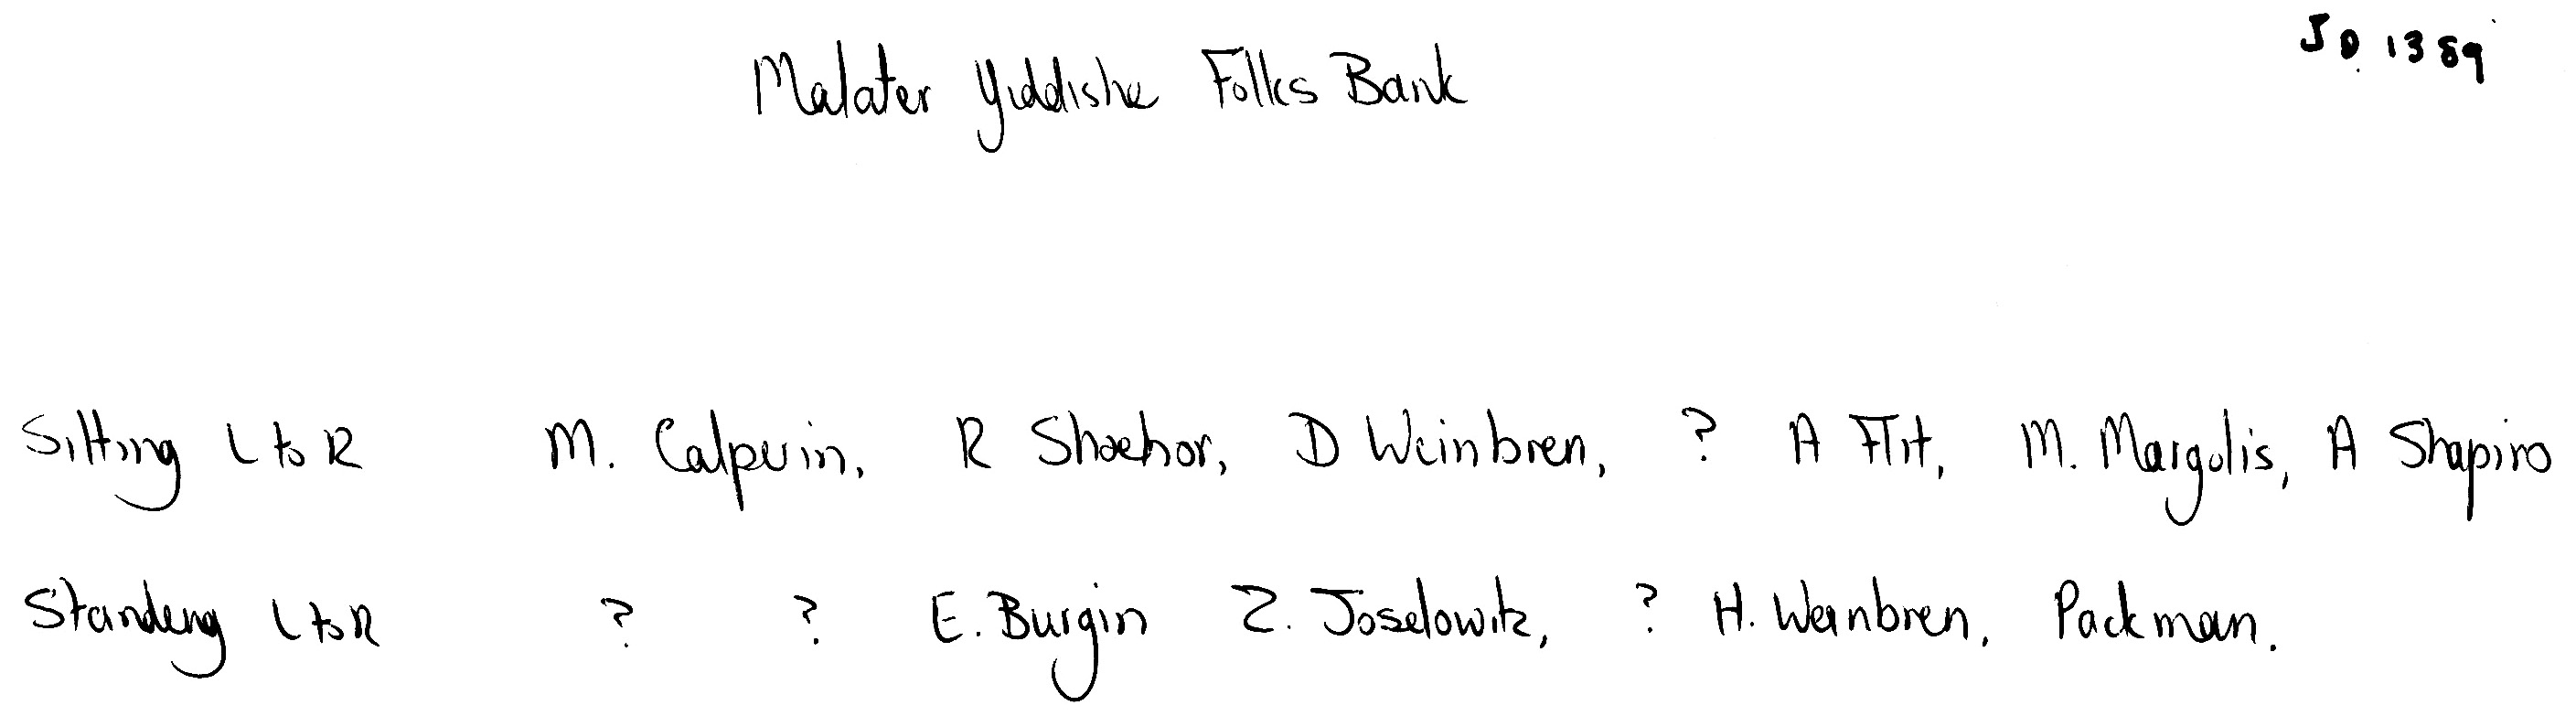 JD. 1389
Malater Yiddishe Folks Bank
Sitting L to R M. Calperin, R Shochor, D Weinbren, ? A Flit, M. Margolis, A Shapiro
Standing L to R ? ? E. Burgin Z. Joselowitz, ? H. Weinbren, Packman.